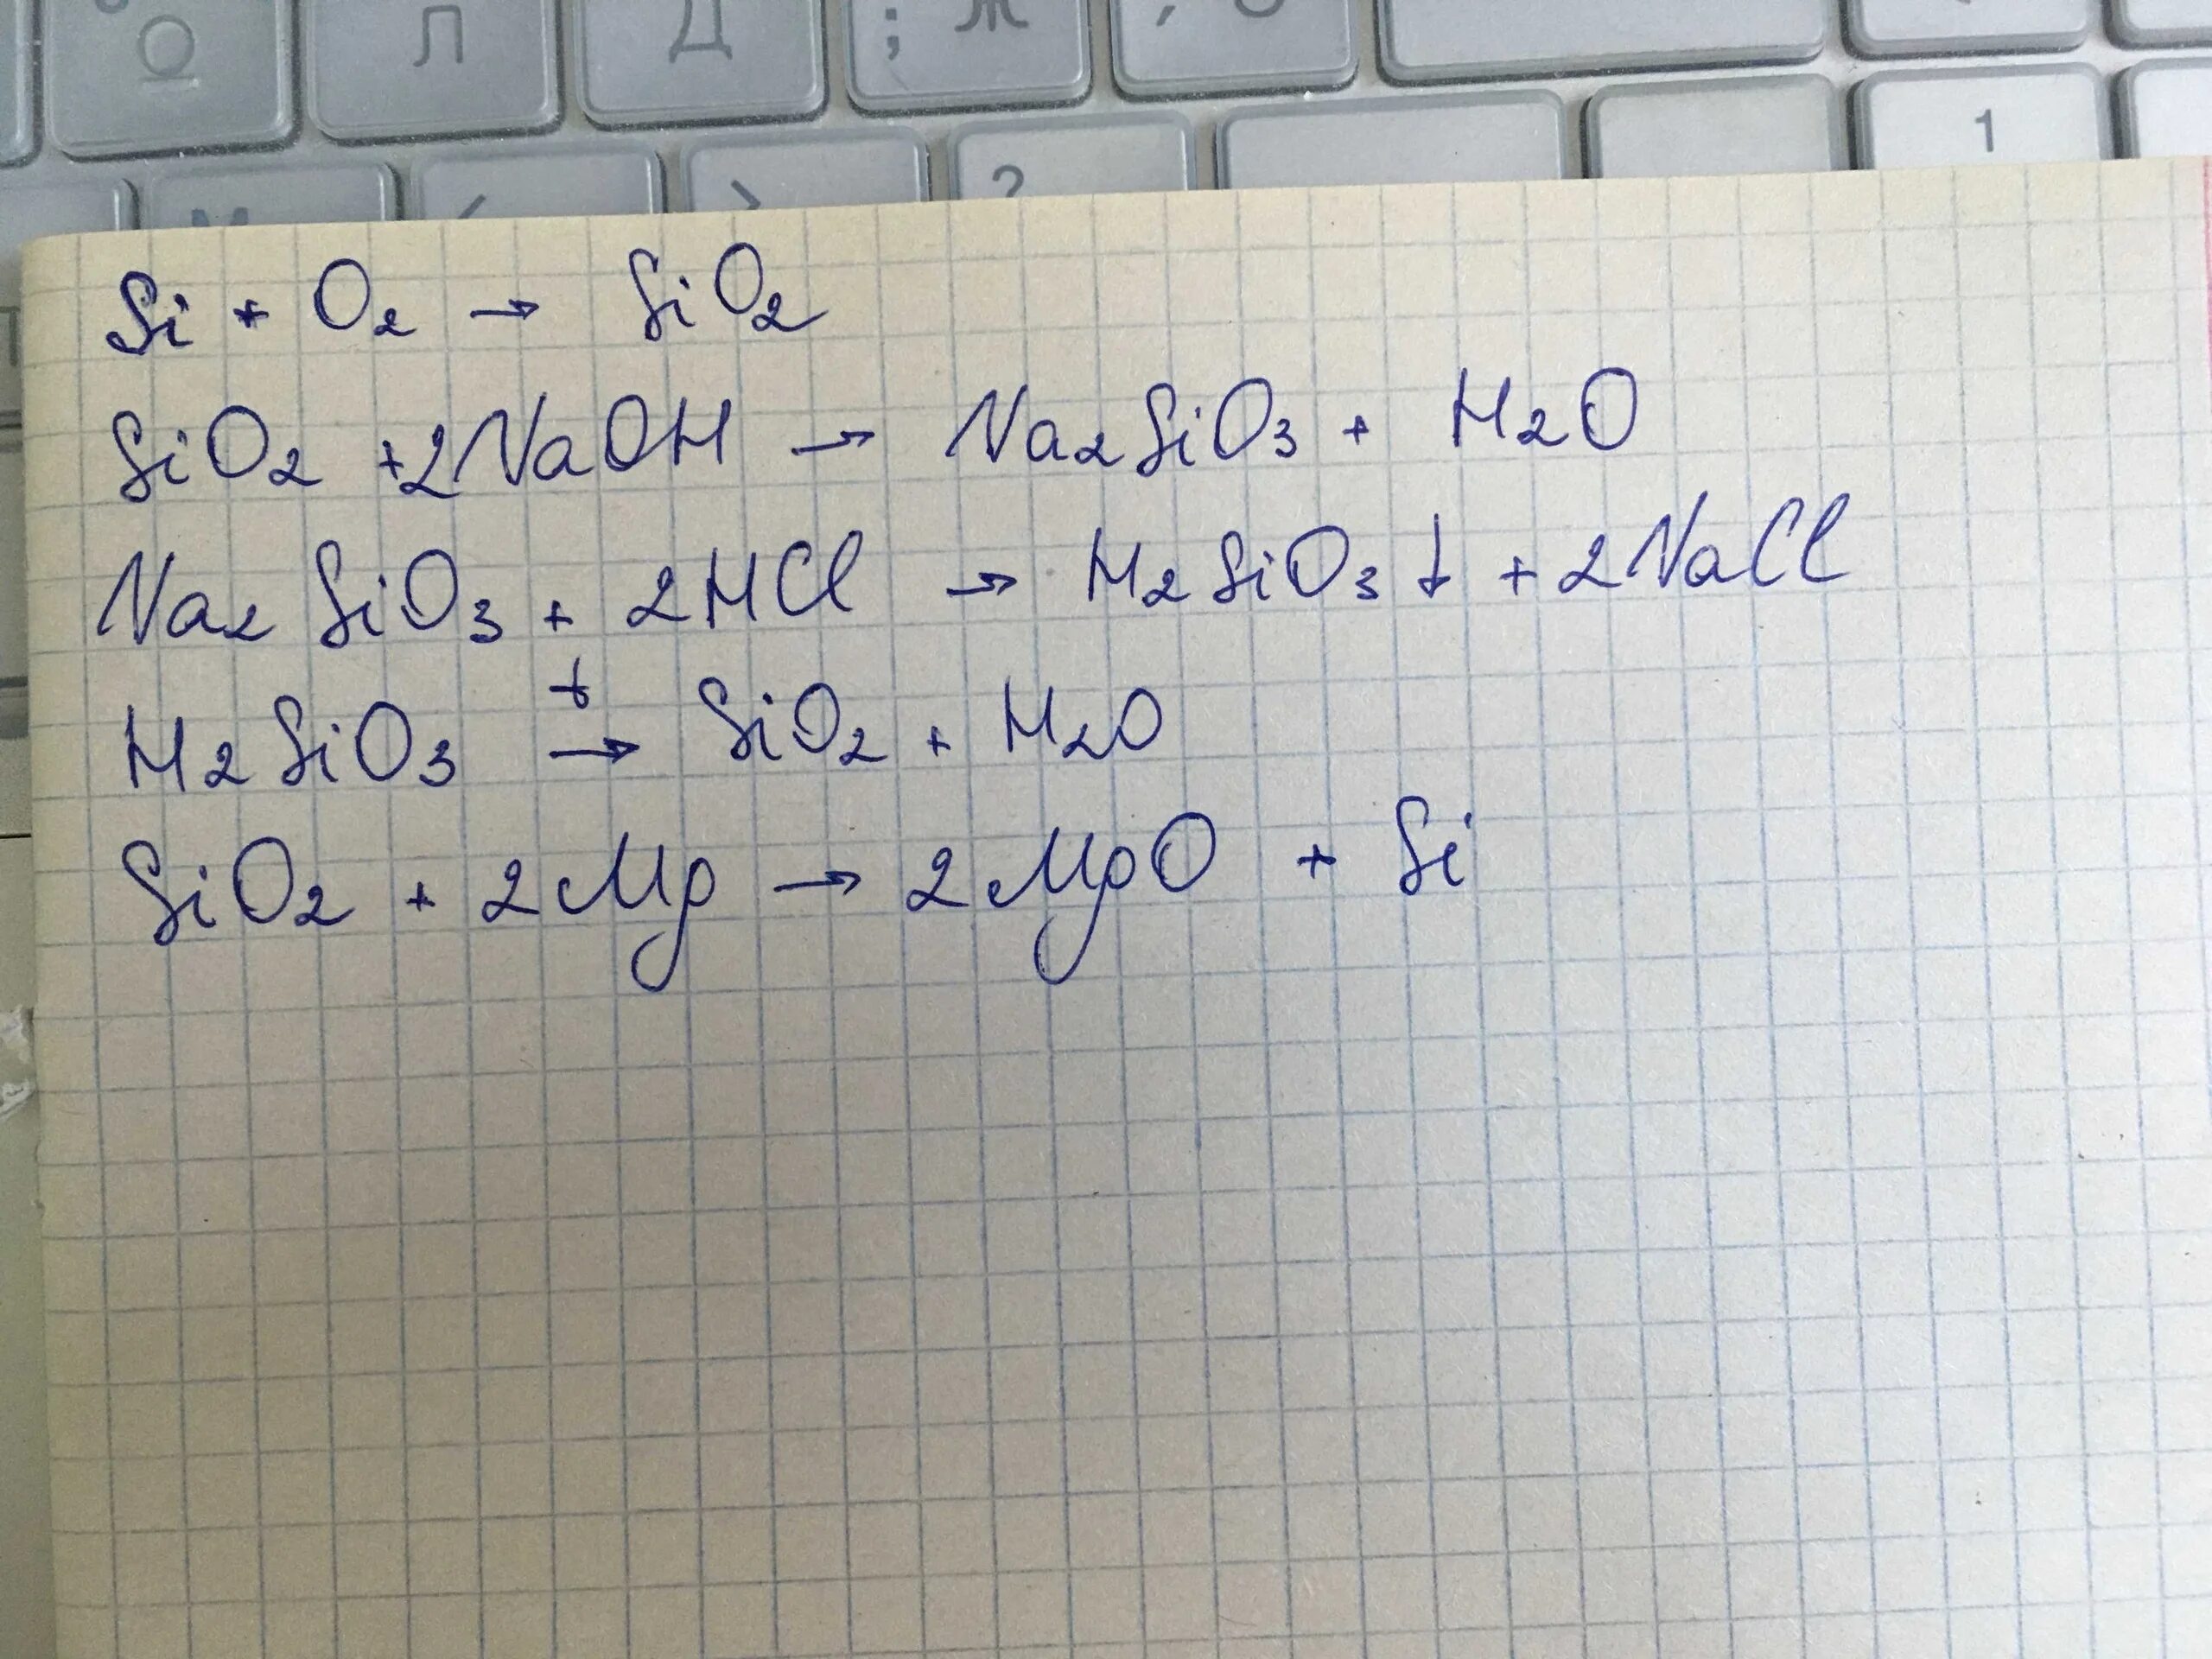 О Л Д ; Ж
М < > ? 1
Si + O₂ → SiO₂
SiO₂ +2NaOH → Na₂SiO₃ + H₂O
Na₂SiO₃ + 2HCl → H₂SiO₃↓ + 2NaCl
H₂SiO₃ t→ SiO₂ + H₂O
SiO₂ + 2Mg → 2MgO + Si